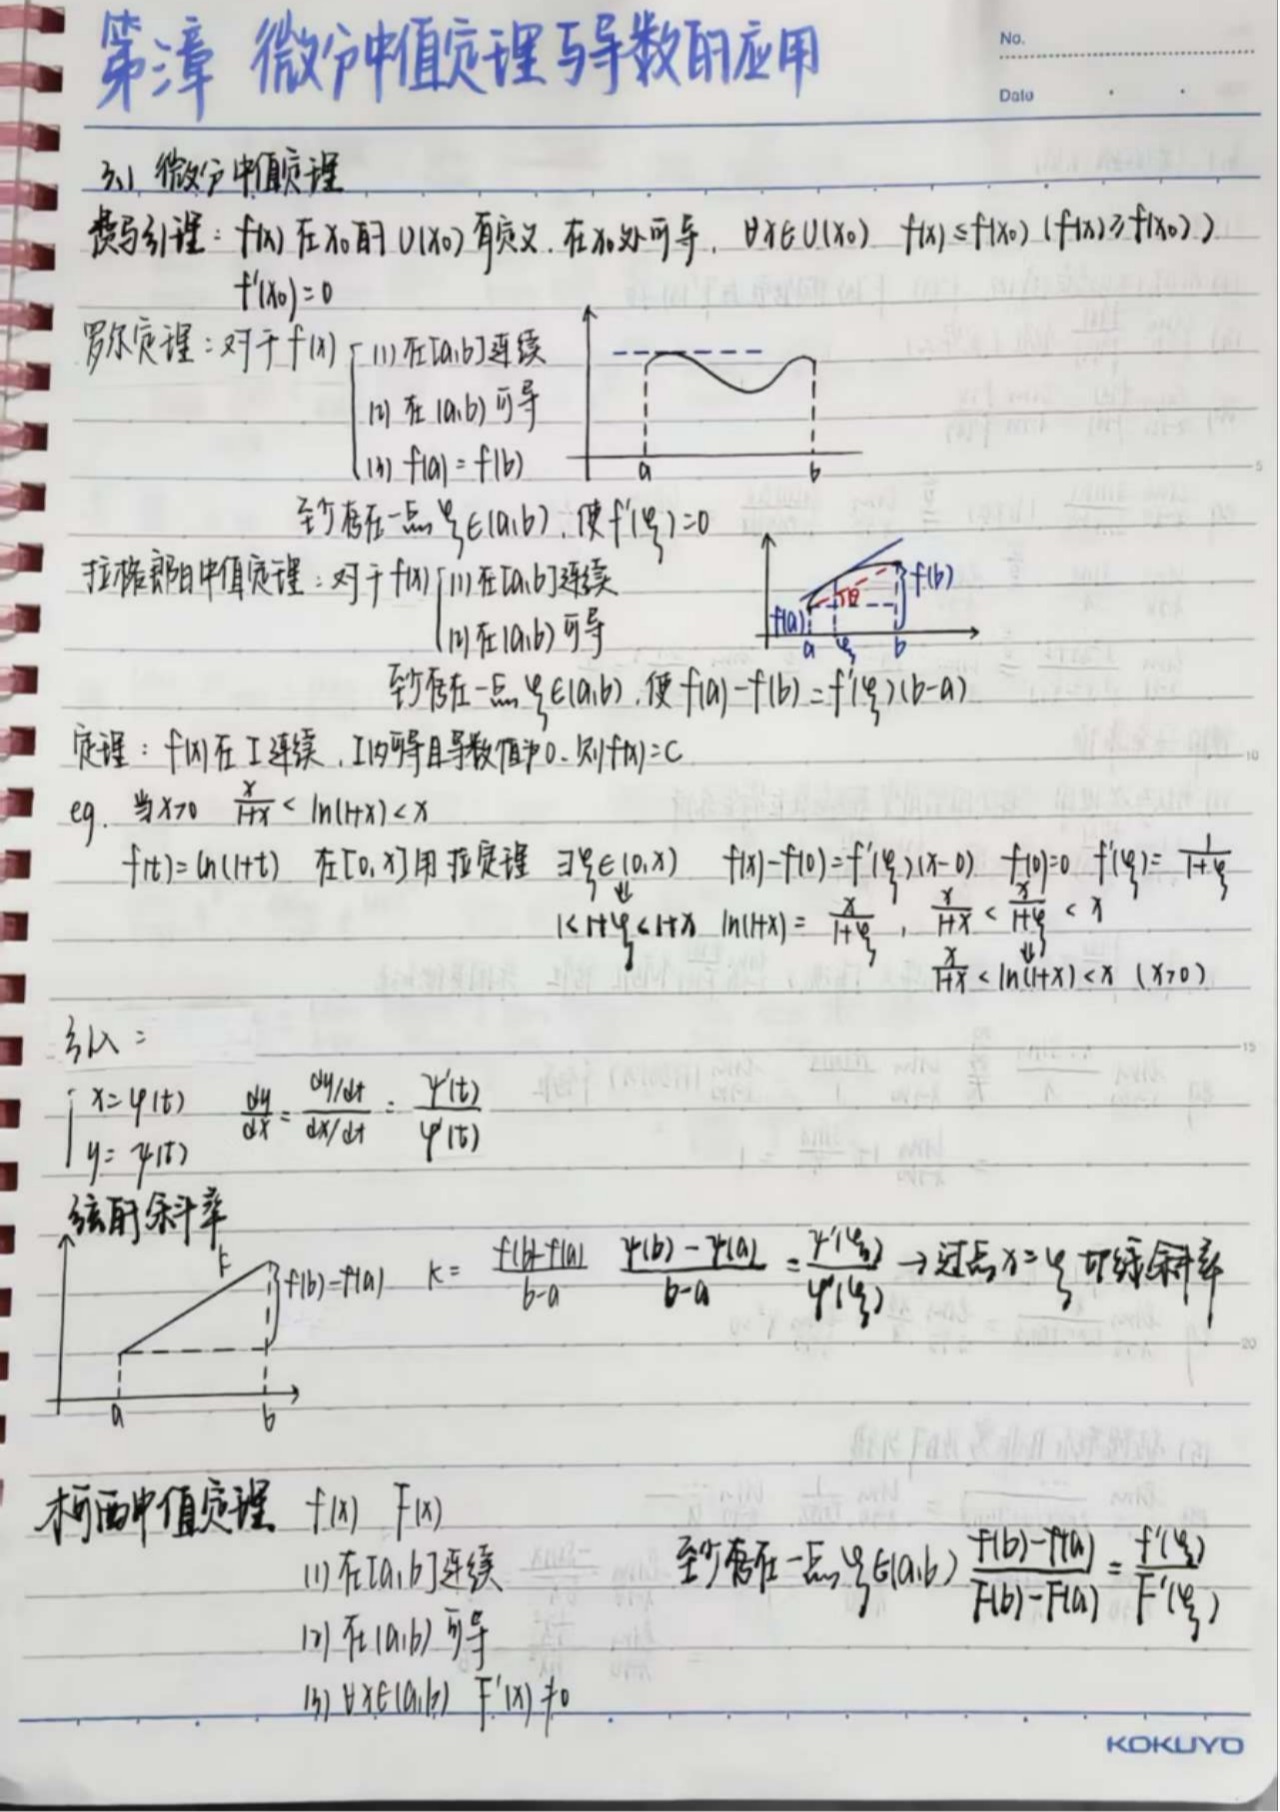 第三章 微分中值定理与导数的应用
No.
Date
3.1 微分中值定理
费马引理：f(x) 在 x₀ 的 U(x₀) 有定义，在 x₀ 处可导，∀x∈U(x₀) f(x)≤f(x₀) (f(x)≥f(x₀))
f'(x₀)=0
罗尔定理：对于 f(x) (1) 在[a,b]连续
(2) 在 (a,b) 可导
(3) f(a)=f(b)
a b
至少存在一点 ξ∈(a,b)，使 f'(ξ)=0
拉格朗日中值定理：对于 f(x) (1) 在[a,b]连续
(2) 在(a,b) 可导
f(a) θ f(b)
a ξ b
至少存在一点 ξ∈(a,b)，使 f(a)-f(b)=f'(ξ)(b-a)
定理：f(x) 在 I 连续，I内可导且导数值为0，则f(x)=C
eg. 当x>0 x/(1+x) < ln(1+x) < x
f(t)=ln(1+t) 在[0,x]用 拉定理 ∃ξ∈(0,x) f(x)-f(0)=f'(ξ)(x-0) f(0)=0 f'(ξ)= 1/(1+ξ)
⇓
1<1+ξ<1+x ln(1+x)= x/(1+ξ) , x/(1+x) < x/(1+ξ) < x
⇓
x/(1+x) < ln(1+x) < x (x>0)
引入：
x=φ(t) dy/dx = (dy/dt)/(dx/dt) = ψ'(t)/φ'(t)
y=ψ(t)
弦的斜率
k f(b)-f(a) k= (f(b)-f(a))/(b-a) (ψ(b)-ψ(a))/(b-a) = ψ'(ξ)/φ'(ξ) → 过点 x=ξ 切线斜率
a b
柯西中值定理 f(x) F(x)
(1) 在[a,b]连续 至少存在一点 ξ∈(a,b) (f(b)-f(a))/(F(b)-F(a)) = f'(ξ)/F'(ξ)
(2) 在(a,b) 可导
(3) ∀x∈(a,b) F'(x)≠0
5
10
15
20
KOKUYO